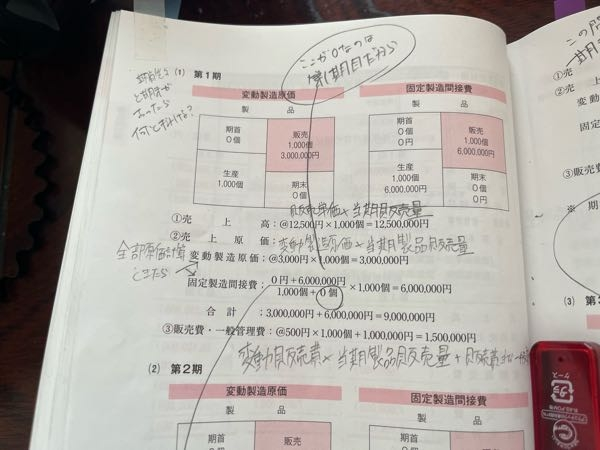 ここが0なのは
第1期目だから
(1) 第1期
変動製造原価
製 品
期首
0個
販売
1,000個
3,000,000円
生産
1,000個
期末
0個
固定製造間接費
製 品
期首
0個
0円
販売
1,000個
6,000,000円
生産
1,000個
6,000,000円
期末
0個
0円
販売単価×当期販売量
①売上高:@12,500円×1,000個=12,500,000円
②売上原価:変動製造原価×当期製品販売量
全部原価計算
変動製造原価:@3,000円×1,000個=3,000,000円
ときたら
固定製造間接費:0円+6,000,000円/1,000個+0個×1,000個=6,000,000円
合計:3,000,000円+6,000,000円=9,000,000円
③販売費・一般管理費:@500円×1,000個+1,000,000円=1,500,000円
変動販売費×当期製品販売量+販売費
(2) 第2期
変動製造原価
製 品
期首
販売
固定製造間接費
製 品
期首
販売
この
①売
②売上
変動
固定
③販売費
※期
(3)
プラ
ケース